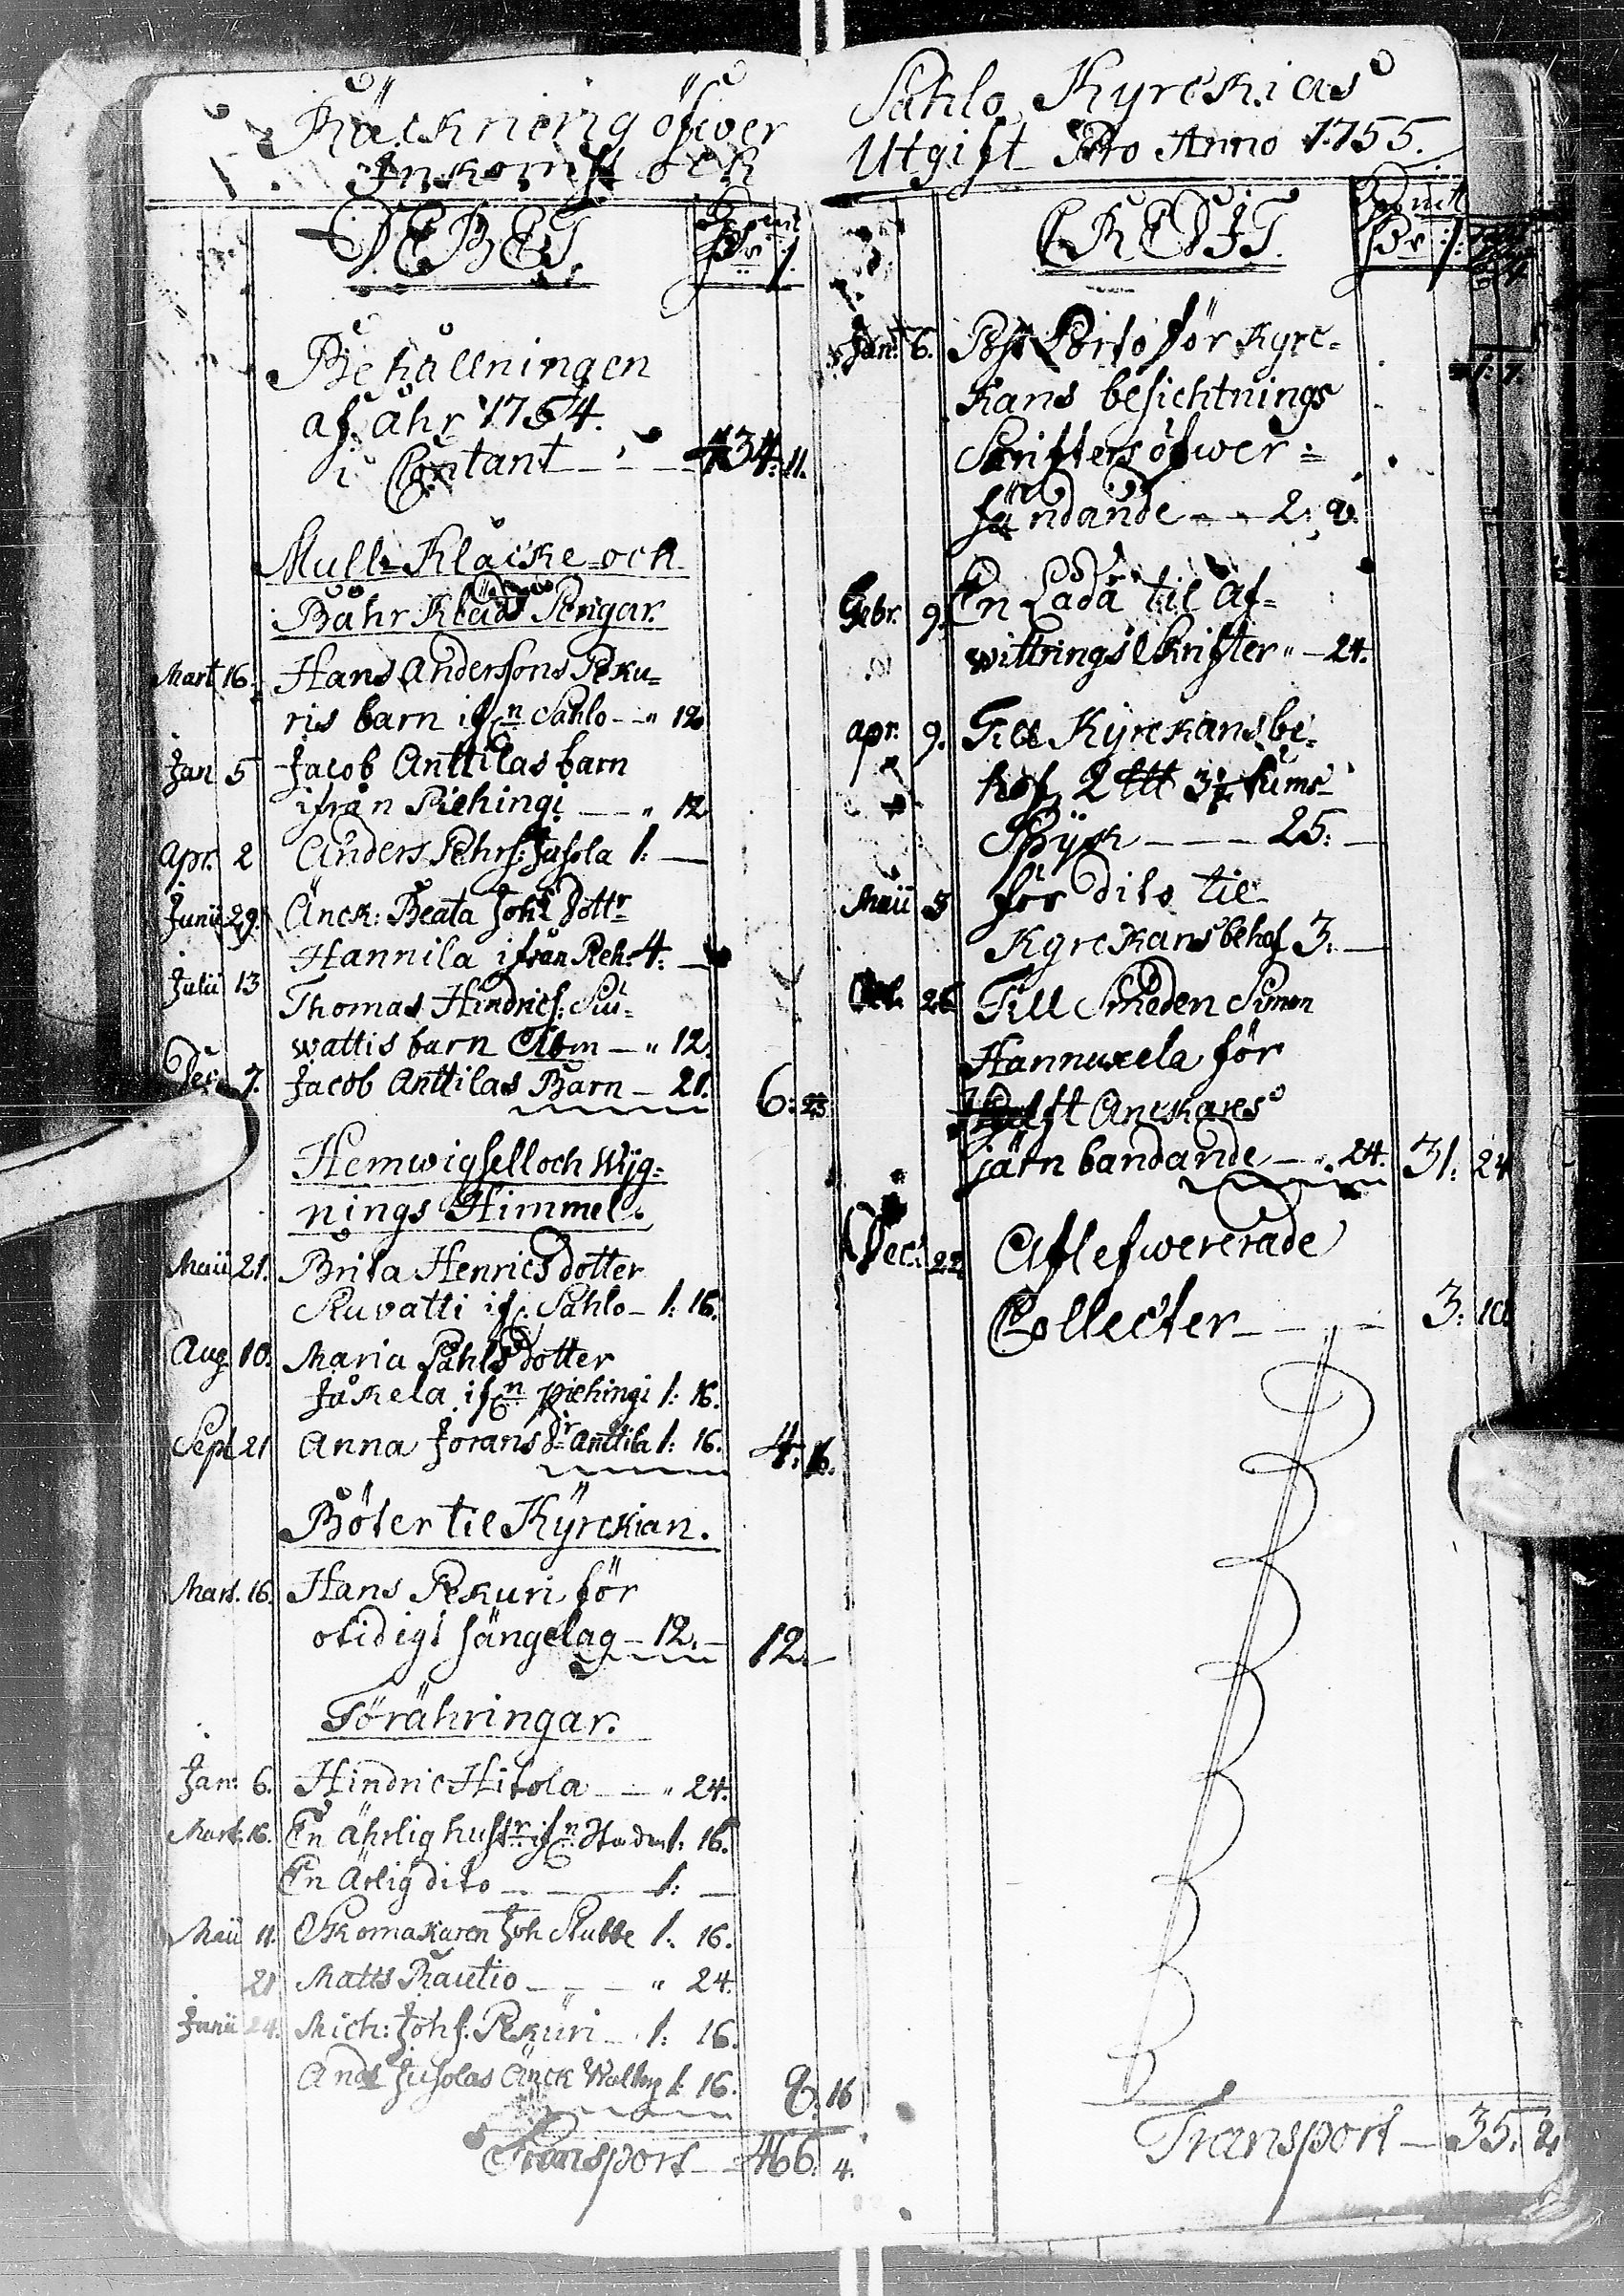 Räckning öfwer
Inkomst och
DEBET.
Behållningen
af åhr 1754.
i Contant - - - 434: 11.
Mull- Klåcke- och
Båhr Kläds Pengar.
Mart 16. Hans Anderssons Peku=
ris barn ifrn Sahlo - - " 12
Jan 5 Jacob Anttilas barn
ifrån Piehingi - - " 12
Apr. 2 Anders Pehrs: Jusola 1: -
Junii 29. Änck: Beata Joh: Dottr
Hannila ifrån Peh: 4: -
Julii 13 Thomas Hindrics: Siu=
wattis barn - " 12.
Dec. 7. Jacob Anttilas Barn - 21. 6: 25
Hemwigsell och Wijg=
nings Himmel.
Maii 21. Brita Henricsdotter
Ruvatti ifr. Sahlo - 1: 16.
Aug. 10. Maria Påhlsdotter
Jåkela ifrn Piehingi 1: 16.
Sept 21 Anna Joransdr Anttila 1: 16. 4: 16.
Böter til Kÿrckian.
Mart. 16. Hans Pekuri för
otidigt sängelag - 12. - 12. -
Förähringar.
Jan: 6. Hindric Hitola - - " 24.
Mart. 16. En ährlig hustr ifrn Staden 1: 16.
En Ärlig dito - - 1: -
Maii 11. Skomakaren Joh Stubbe 1: 16.
21. Matts Rautio - - - " 24.
Junii 24. Mich: Johs. Pekuri - 1: 16.
Ands Jusolas Änck 1: 16. 8: 16
Transport - 466: 4.
Sahlo Kyrckias
Utgift Pro Anno 1755.
CREDIT.
Jan: 6. Post Porto för Kyrc=
kans besichtnings
Skrifters öfwer=
sändande - - 2: "
Febr. 9. En Låda til Af=
wittrings Skrifter " - 24.
apr. 9. Till Kyrckans be=
hof 2 ttt 3½ tums
Spÿck - - - 25: -
Maii 5 för dito til
Kyrckans behof 3: -
Oct. 26 Till Smeden Simon
Hannuxela för
Anckares
järn bandande - " 24. 31: 24
Dec: 22 Aflefwererade
Collecter - - - 3: 10.
Transport - 35: 2.